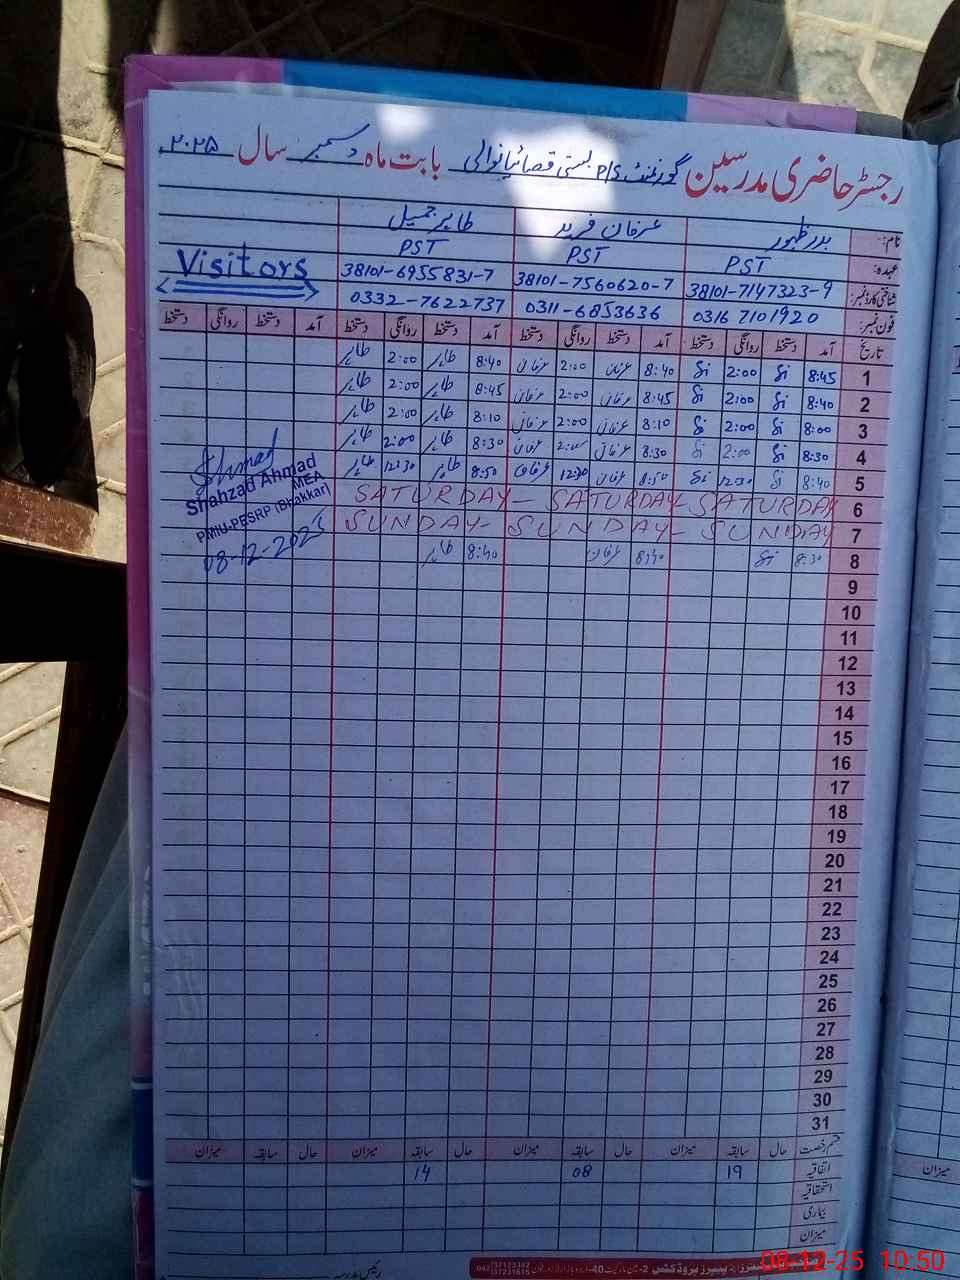 رجسٹر حاضری مدرسین گورنمنٹ P/S بستی قصائیانوالی بابت ماہ دسمبر سال ۲۰۲۵
نام: بدر ظہور عرفان فرید طاہر جمیل
عہدہ: PST PST PST Visitors
شناختی کارڈ نمبر: 38101-7147323-9 38101-7560620-7 38101-6955831-7
فون نمبر: 0316 7101920 0311-6853636 0332-7622737
تاریخ آمد دستخط روانگی دستخط آمد دستخط روانگی دستخط آمد دستخط روانگی دستخط آمد دستخط روانگی دستخط
1 8:45 2:00 8:40 عرفان 2:00 عرفان 8:40 طاہر 2:00 طاہر
2 8:40 2:00 8:45 عرفان 2:00 عرفان 8:45 طاہر 2:00 طاہر
3 8:00 2:00 8:10 عرفان 2:00 عرفان 8:10 طاہر 2:00 طاہر
4 8:30 2:00 8:30 عرفان 2:00 عرفان 8:30 طاہر 2:00 طاہر
5 8:40 12:30 8:50 عرفان 12:30 عرفان 8:50 طاہر 12:30 طاہر
6 SATURDAY- SATURDAY- SATURDAY
7 SUNDAY- SUNDAY- SUNDAY
8 8:30 8:40 عرفان 8:40 طاہر
Ahmad
Shahzad Ahmad
MEA
PMIU-PESRP (Bhakkar)
08-12-2025
9
10
11
12
13
14
15
16
17
18
19
20
21
22
23
24
25
26
27
28
29
30
31
قسم رخصت حال سابقہ میزان حال سابقہ میزان حال سابقہ میزان حال سابقہ میزان
اتفاقیہ 19 08 14
استحقاقیہ
بیماری
میزان
رئیس مدرسہ
میزان
08-12-25 10:50